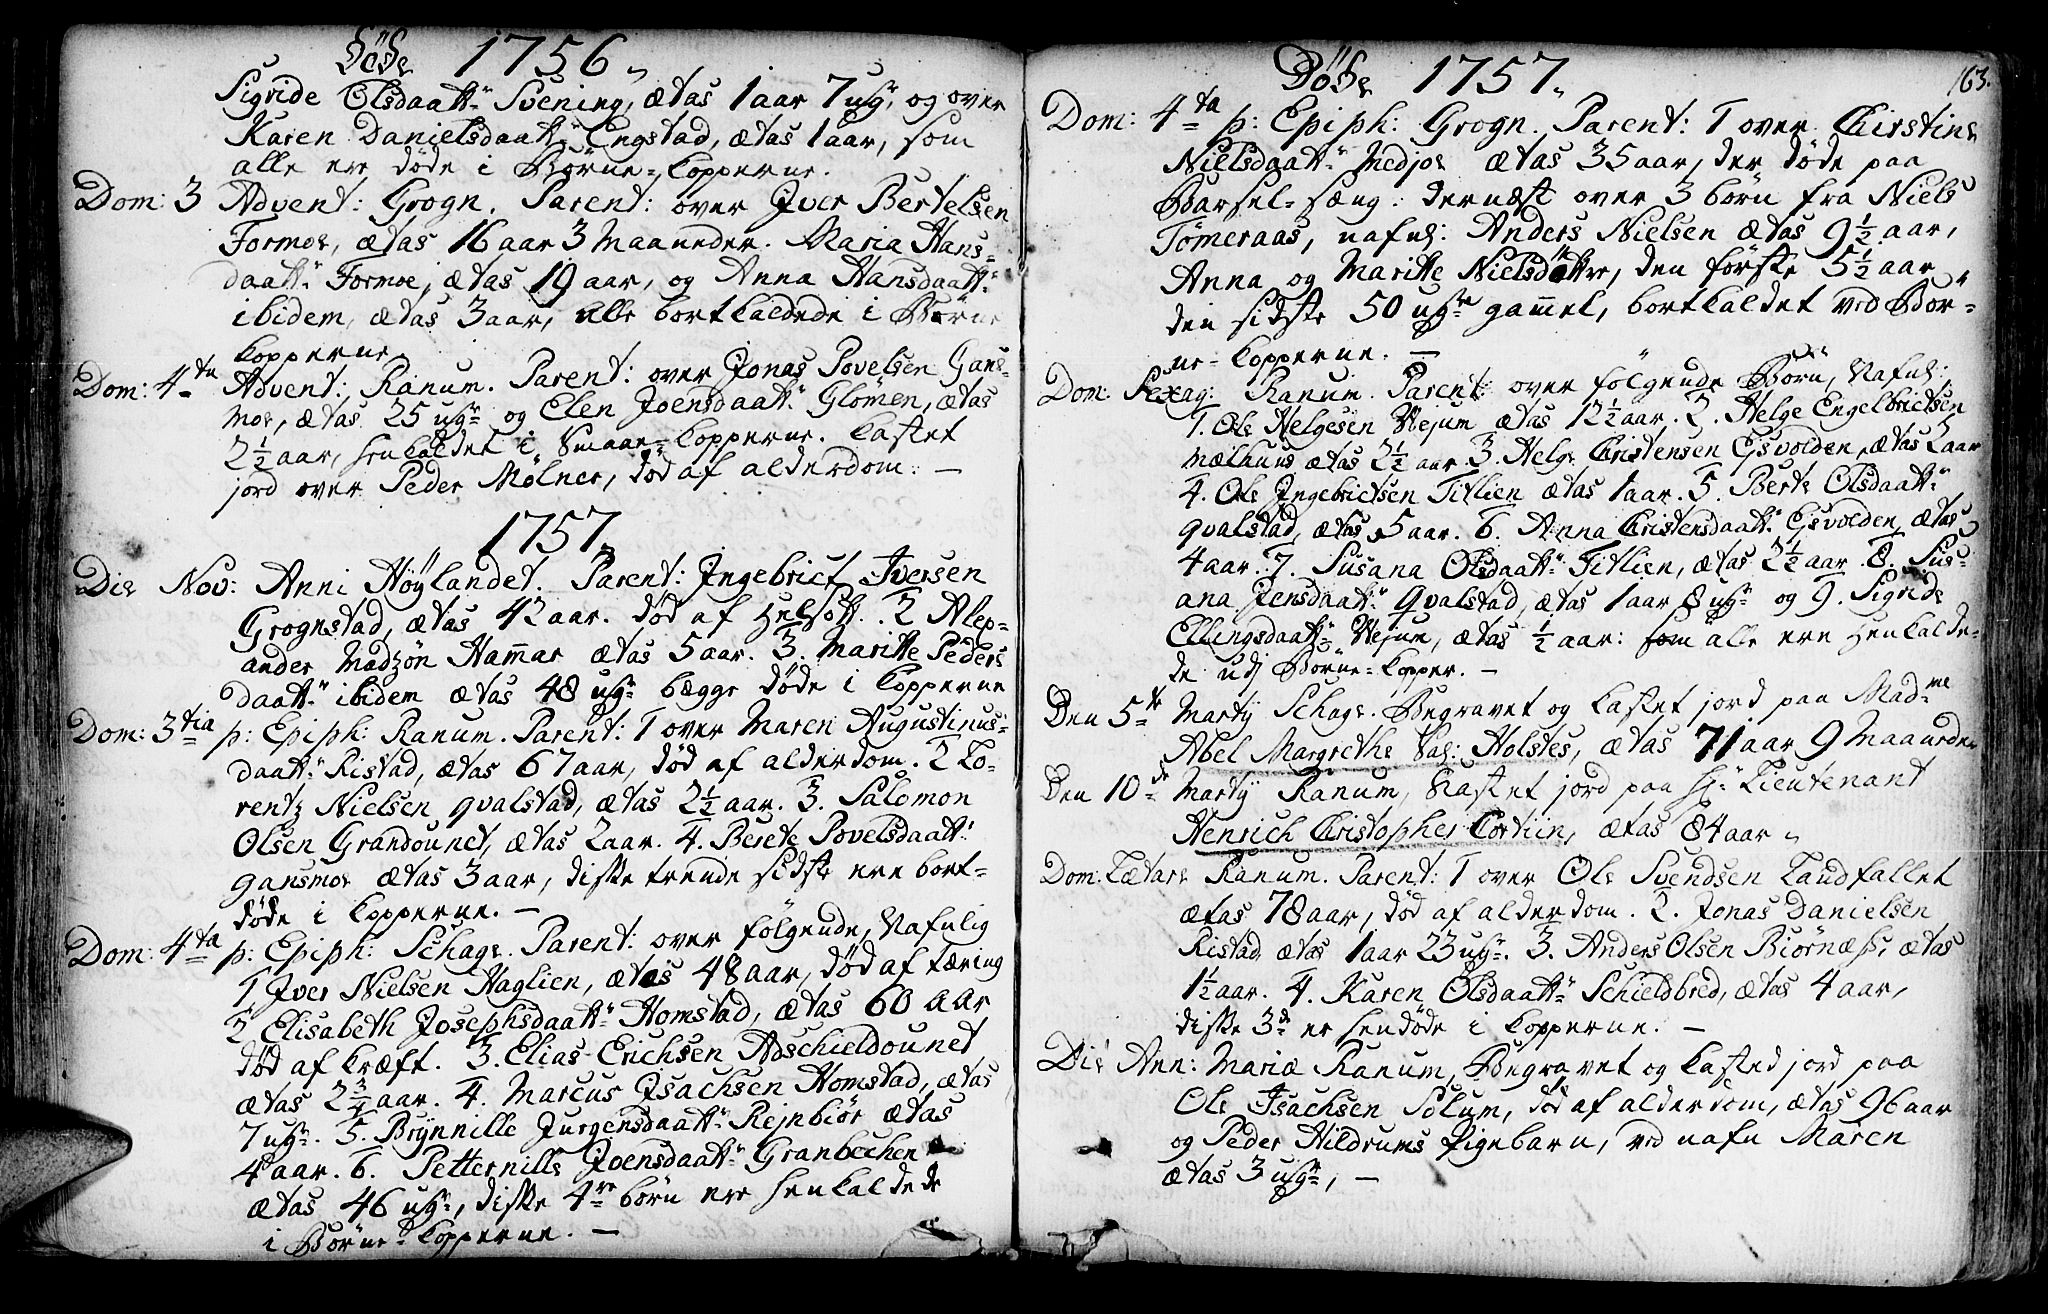 Døde 1756
Sigride Olsdaatt: Svening, ætas 1 aar 7 ugr, og over
Karen Danielsdaatt: Engstad, ætas 1 aar, som
alle ere døde i Børne-Kopperne.
Dom: 3 Advent: Grogn. Parent: over Jver Bertelsen
Formoe, ætas 16 aar 3 Maaneder. Maria Hans-
daatt: Formoe, ætas 19 aar, og Anna Hansdaatt:
ibidem, ætas 3 aar, alle bortkaldede i Børne
Kopperne
Dom: 4ta Advent: Ranum. Parent: over Jonas Povelsen Gans-
moe, ætas 25 ugr og Elen Joensdaatt: Glömen, ætas
2 1/2 aar, henkaldet i Smaae-Kopperne. Kastet
jord over Peder Mölner, död af alderdom. —
1757
Die Nov: Anni Höylandet. Parent: Jngebrict Jversen
Grognstad, ætas 42 aar. död af Helsott. 2 Alex-
ander Madzön Hammar ætas 5 aar. 3. Maritte Peders
daatt: ibidem ætas 48 ugr begge døde i Kopperne
Dom: 3tia p: Epiph: Ranum. Parent: 1 over Maren Augustinus-
daatt: Ristad, ætas 67 aar, död af alderdom. 2 Lo-
rentz Nielsen qvalstad, ætas 2 1/2 aar. 3. Salomon
Olsen Grandounet, ætas 2 aar. 4. Berete Povelsdaatt:
gansmoe ætas 3 aar, disse trende sidste ere bort-
døde i Kopperne. —
Dom: 4ta p: Epiph: Schage. Parent: over følgende, Nafnlig
1 Jver Nielsen Haglien, ætas 48 aar, död af Tæring
2 Elisabeth Josephsdaatt: Homstad, ætas 60 aar
död af Kræft. 3. Elias Erichsen Adschieldounet
ætas 2 3/4 aar. 4. Marcus Jsachsen Homstad, ætas
7 ugr. 5. Brÿnnille Jurgensdaatt: Rejnbiör ætas
4 aar. 6. Petternille Joensdaatt: Granbechen
ætas 46 ugr, disse 4re börn ere henkaldede
i Börne-Kopperne. —
Døde 1757. 163.
Dom: 4ta p: Epiph: Grogn. Parent: 1 over Chirstine
Nielsdaatt: Medjoe ætas 35 aar, der døde paa
Barsel-sæng: dernæst over 3 börn fra Niels
Tömeraas, nafnl: Anders Nielsen ætas 9 1/2 aar,
Anna og Maritte Nielsdöttre, den förste 5 1/2 aar
den sidste 50 ugr gammel, bortkaldet ved Bör-
ne-Kopperne. —
Dom: Sexag: Ranum. Parent: over følgende Börn, Nafnl:
1. Ole Helgesen Vejum ætas 12 1/2 aar. 2. Helge Engelbrictsen
Mælhuus ætas 2 1/2 aar. 3. Helge Christensen Ejsvolden, ætas 2 aar
4. Ole Jngebrictsen Titlien ætas 1 aar. 5. Berte Olsdaatt:
qvalstad, ætas 5 aar. 6. Anna Christensdaatt: Ejsvolden, ætas
4 aar. 7. Susana Olsdaatt: Titlien, ætas 2 1/2 aar. 8. Sus-
ana Jensdaatt: Qvalstad, ætas 1 aar 8 ugr og 9. Sigride
Ellingsdaatt: Vejum, ætas 1/2 aar: som alle ere henkalde-
de udj Börne-Kopper. —
Den 5te Martij Schage. Begravet og kastet jord paa Madme
Abel Margrethe Sal: Holstes, ætas 71 aar 9 Maaneder
Den 10de Martij Ranum, Kastet jord paa Hr: Lieutenant
Henrich Christopher Cortiin, ætas 84 aar
Dom: Lætare Ranum. Parent: 1 over Ole Svendsen Landfallet
ætas 78 aar, död af alderdom. 2. Jonas Danielsen
Ristad ætas 1 aar 23 ugr. 3. Anders Olsen Biörnæss, ætas
1 1/2 aar. 4. Karen Olsdaatt: Schieldbred, ætas 4 aar,
disse 3de er hendöde i Kopperne. —
Die Ann: Mariæ Ranum, Begravet og Kasted jord paa
Ole Jsachsen Solum, död af alderdom, ætas 96 aar
og Peder Hildrums Pigebarn, ved nafn Maren
ætas 3 ugr, —